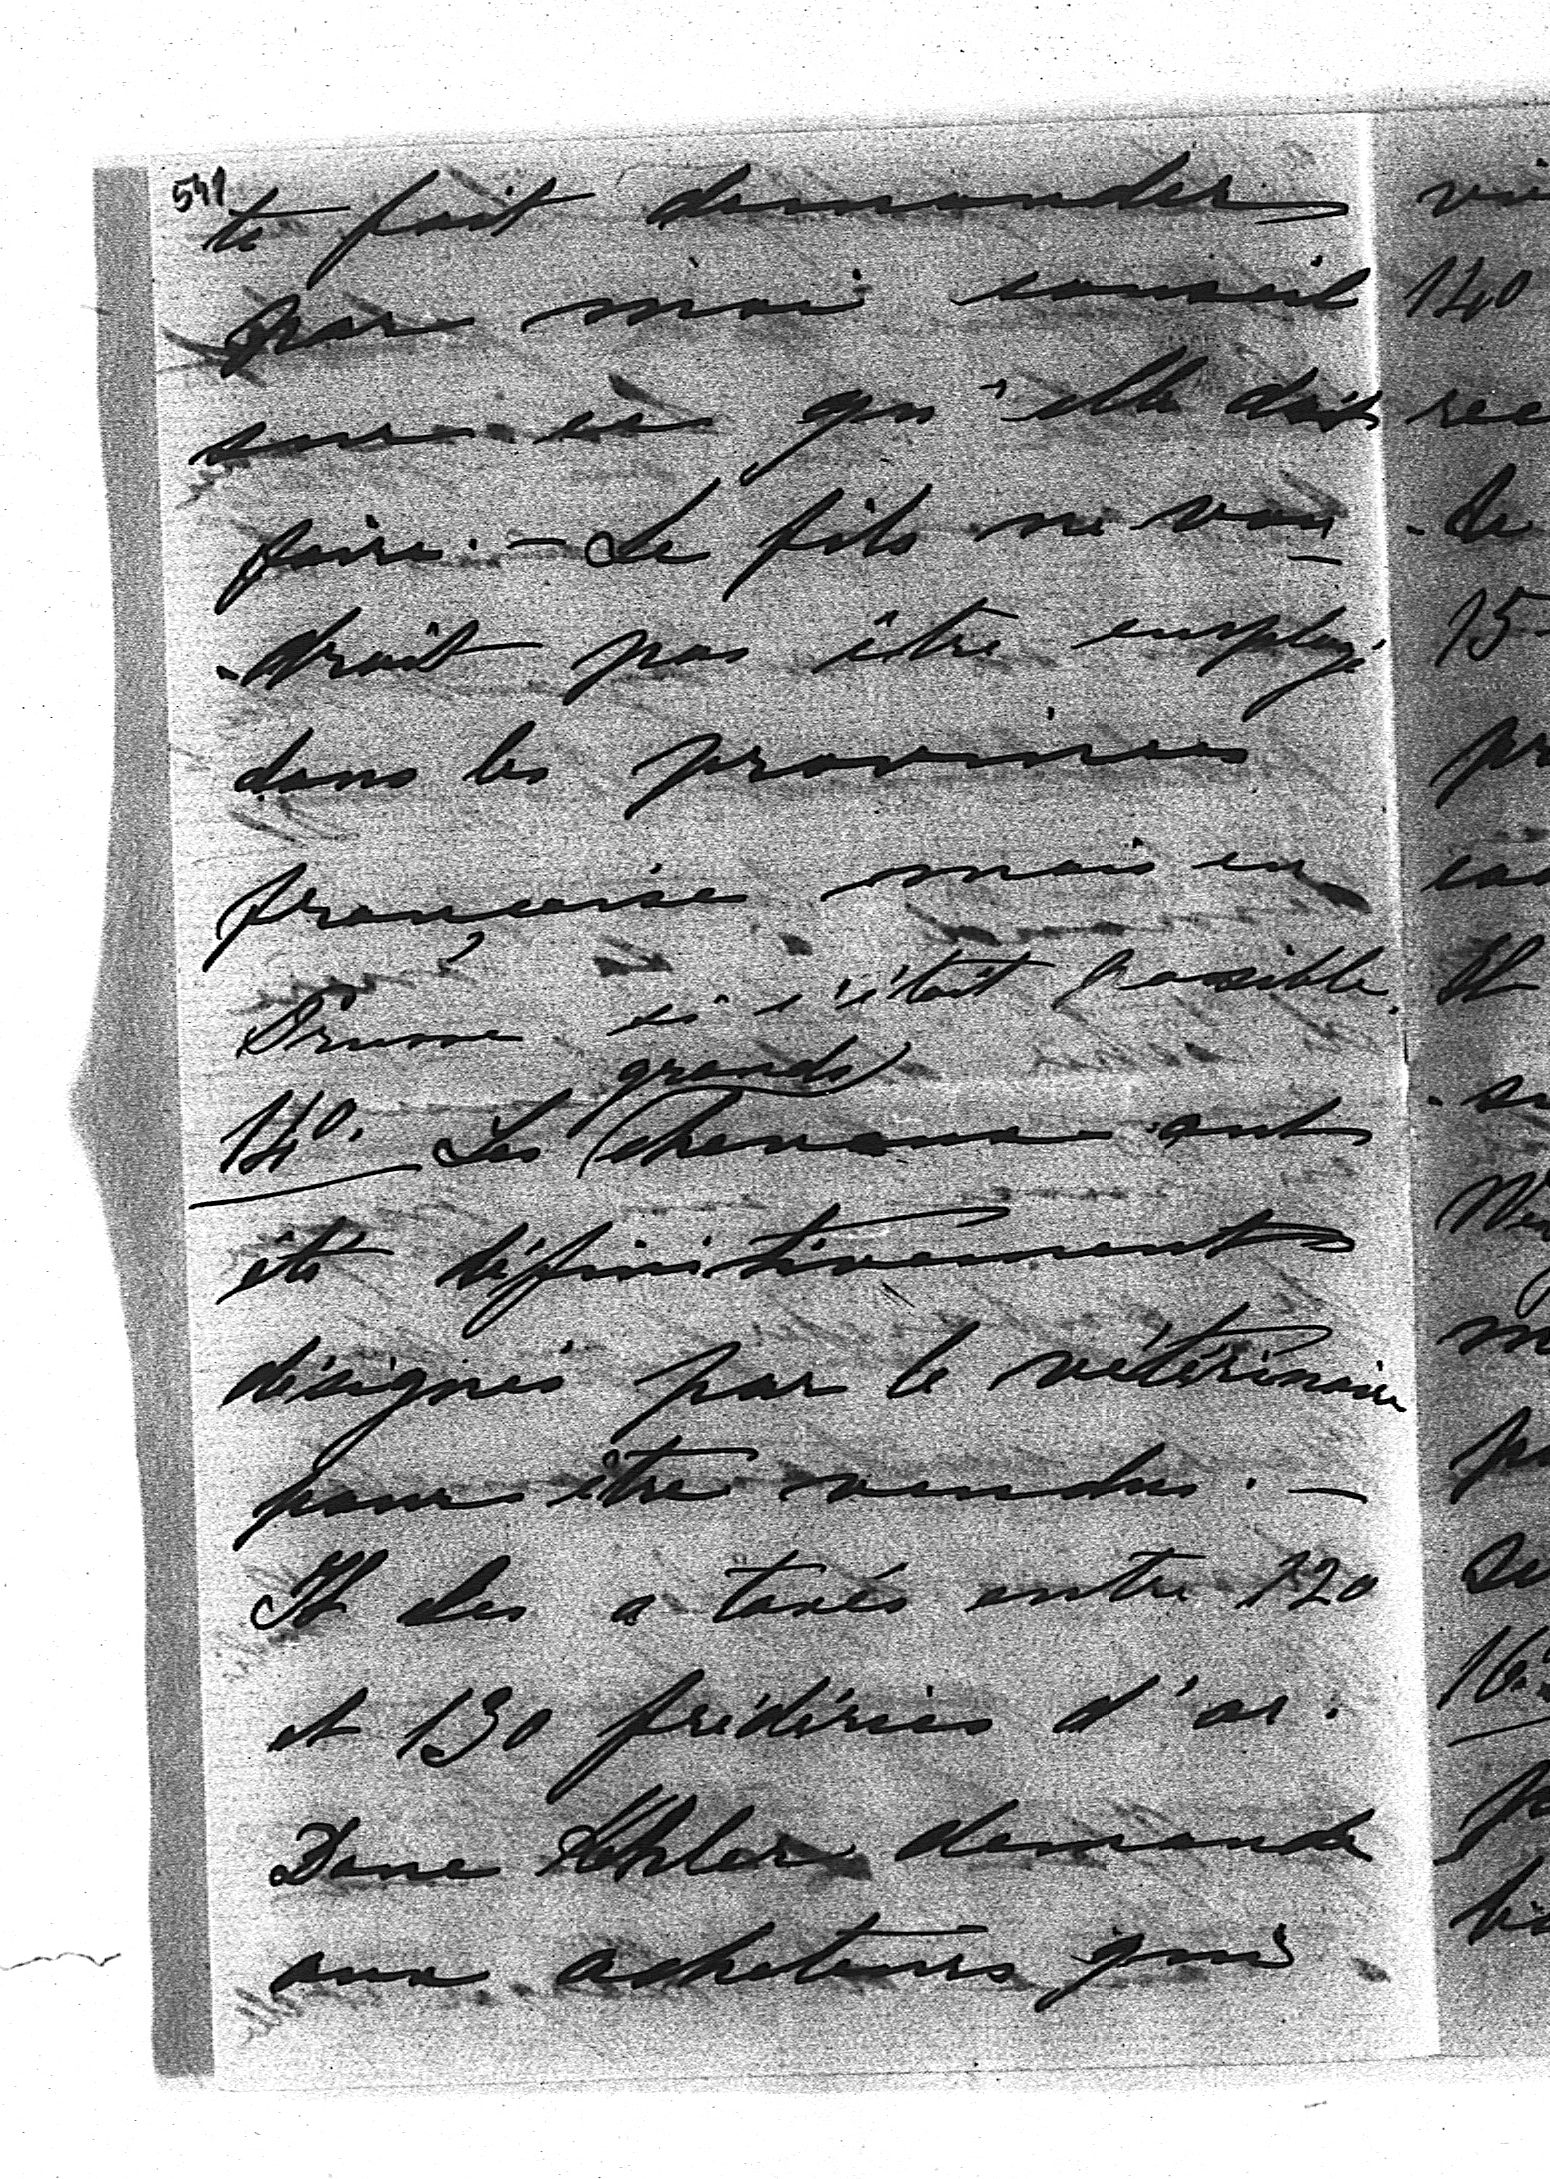 541
te fait demander
par moi conseil
sur ce qu'elle doit
faire. — Le fils ne vou-
-drait pas être employé
dans les provinces
françaises mais en
Prusse si c'était possible.
14°. Les grands chevaux ont
été définitivement
désignés par le vétérinaire
pour être vendus. —
Il les a taxés entre 120
et 130 frédérics d'or.
Donc demande
aux acheteurs qui